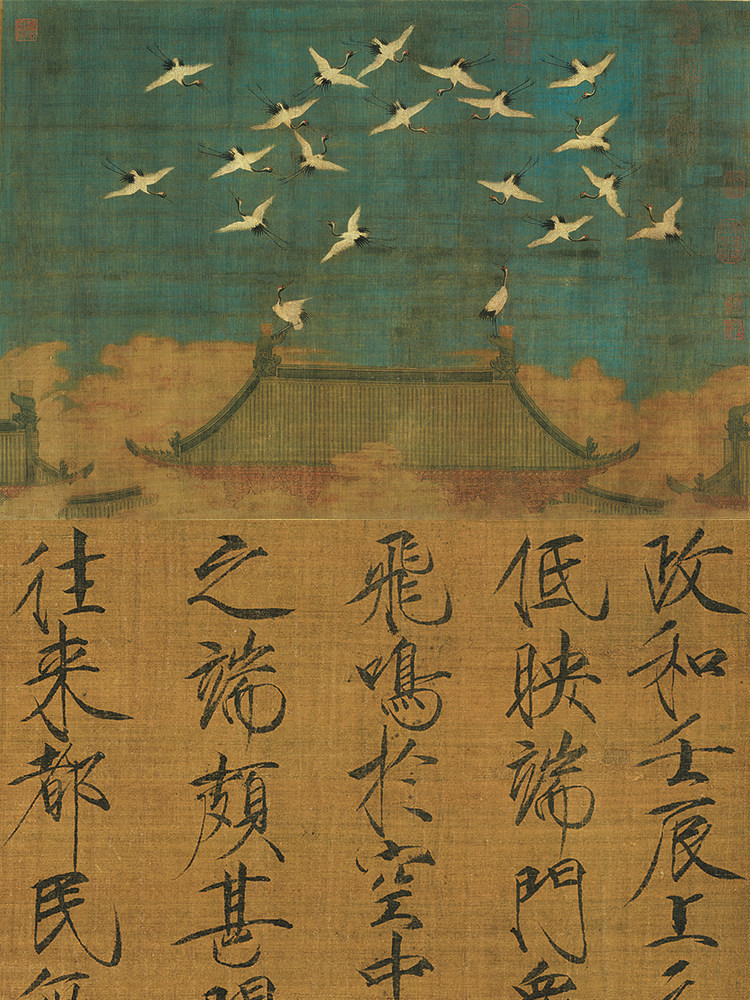 政和壬辰上
低映端門
飛鳴於空中
之端頗甚
往來都民